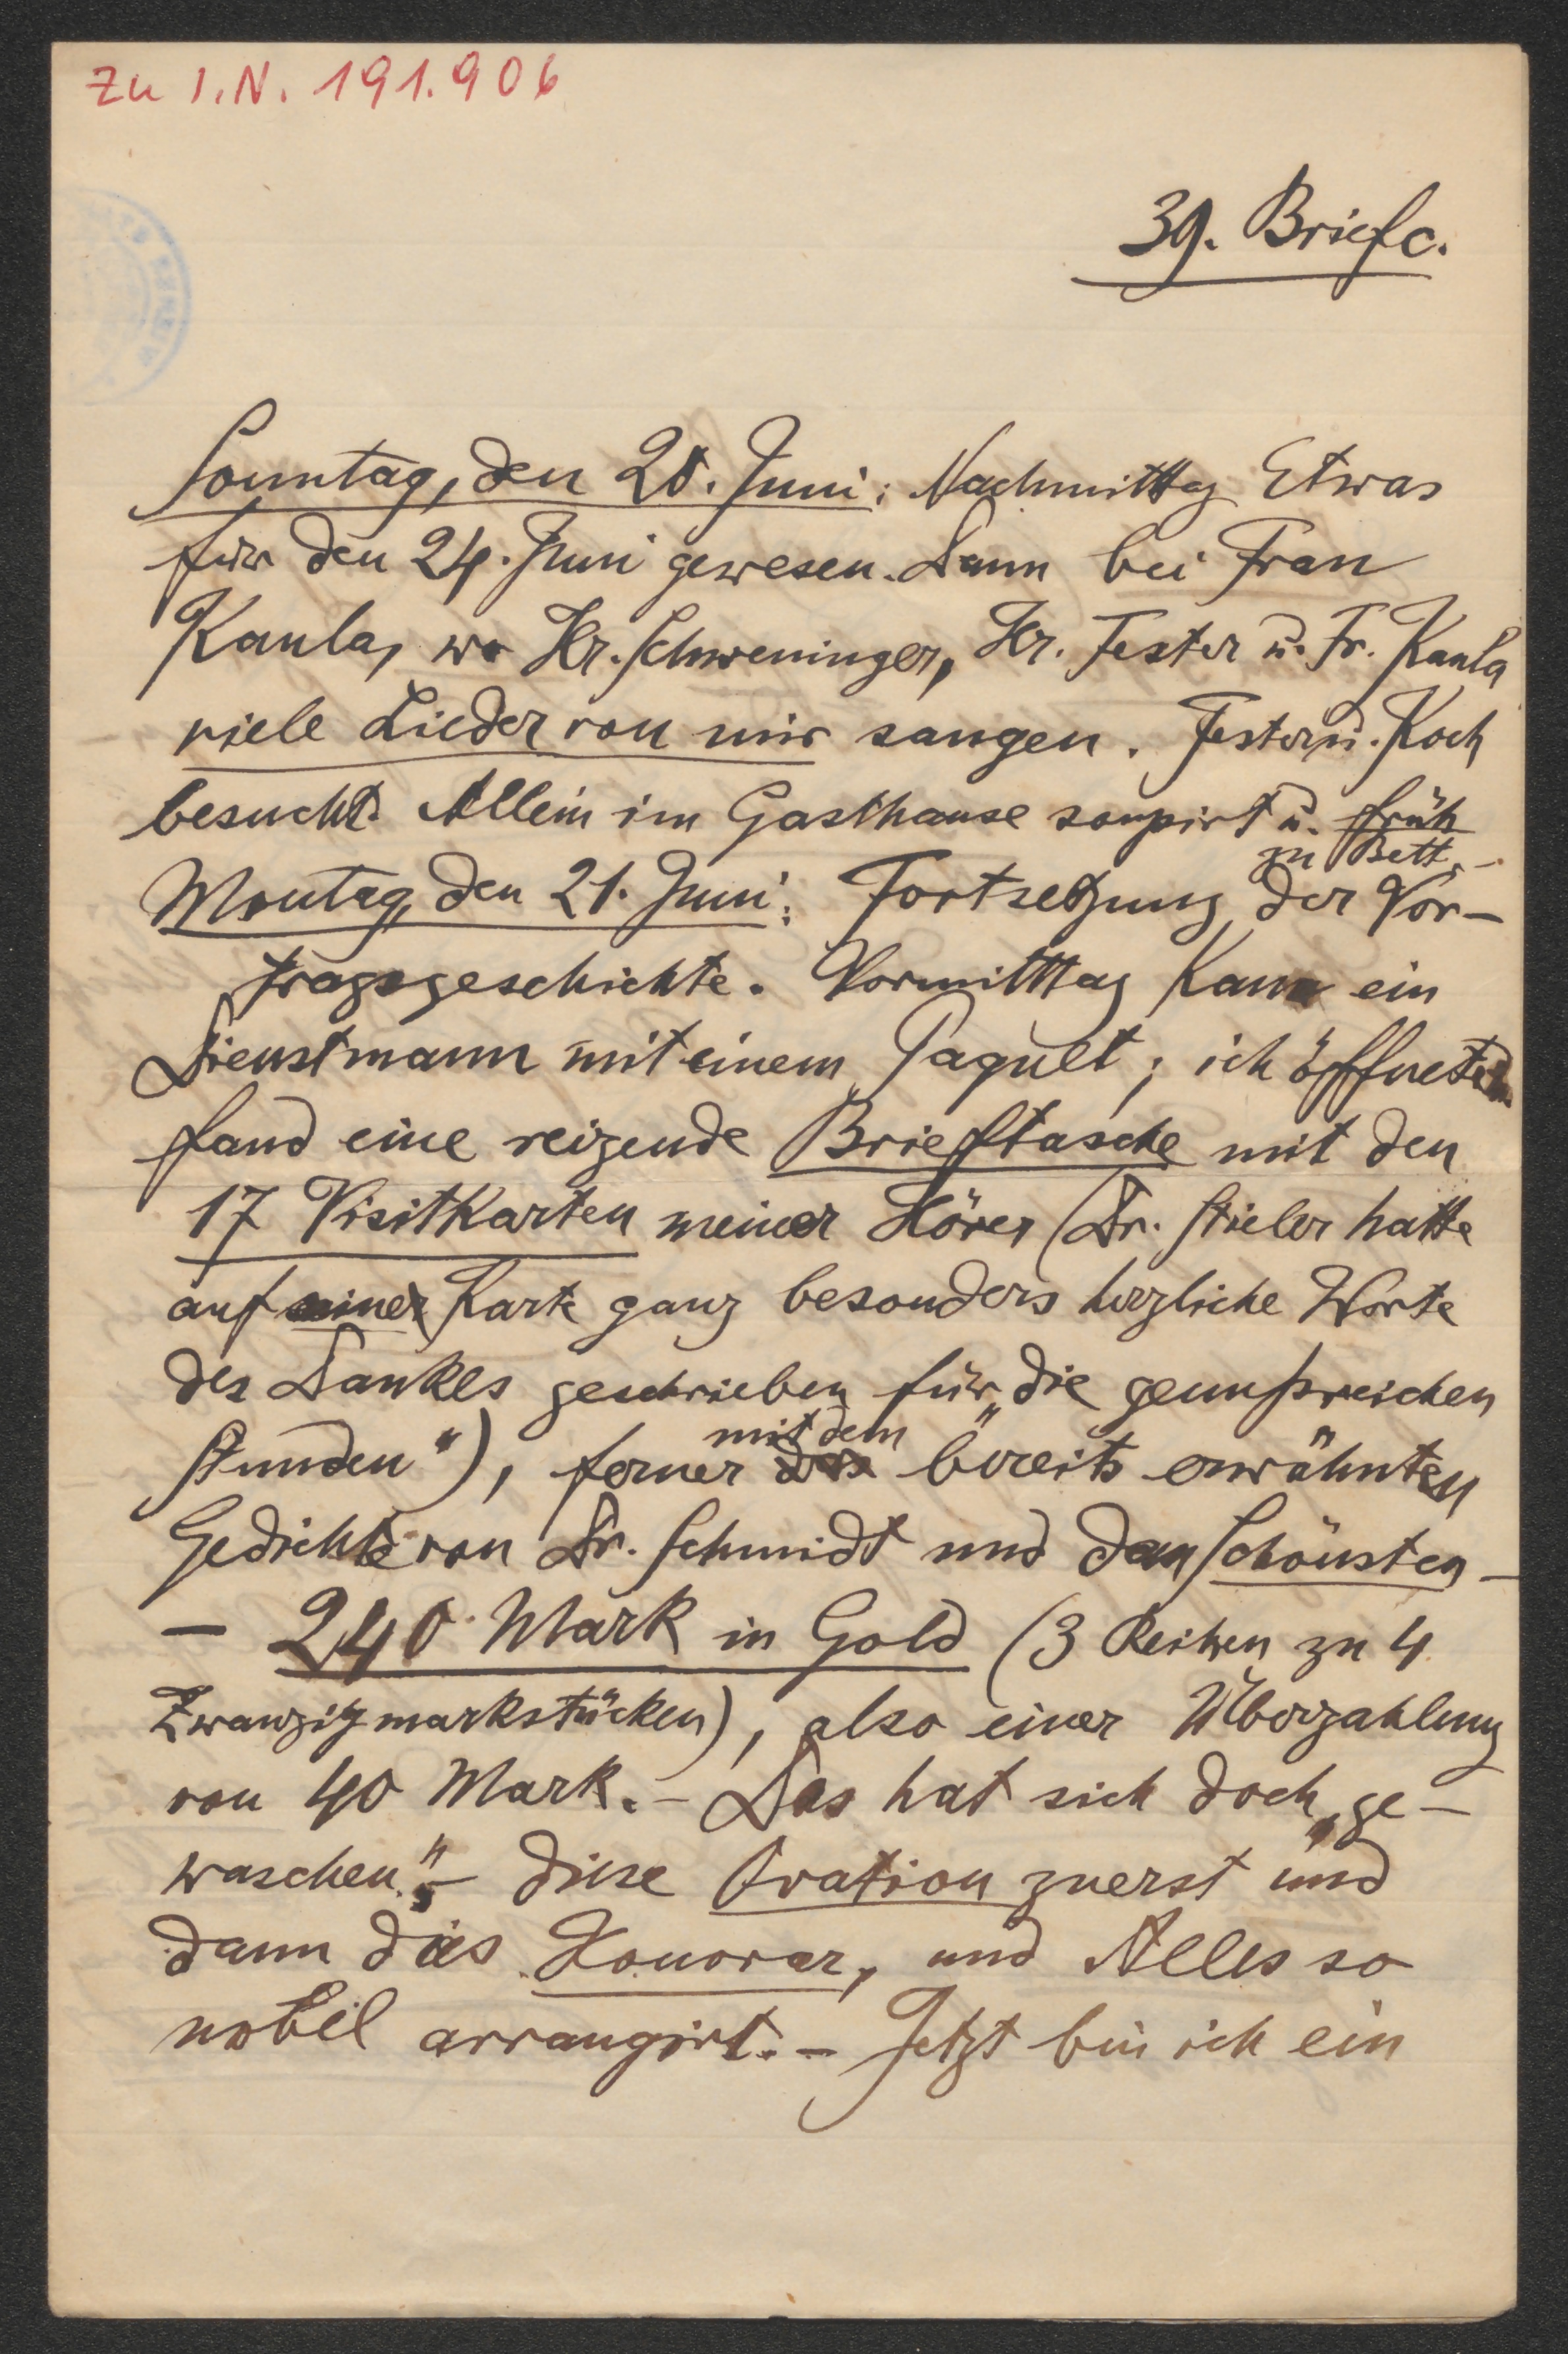 Zu I.N. 191.906
39. Brief.
Sonntag, den 20. Juni: Nachmittag Etwas
für den 24. Juni gewesen. Dann bei Frau
Kaula, wo Hr. Schweninger, Hr. Fester u. Fr. Kaula
viele Lieder von mir sangen. Fester u. Koch
besucht. Allein im Gasthause soupirt u. früh
zu Bett. –
Montag, den 21. Juni: Fortsetzung der Vor-
tragsgeschichte. Vormitttag kam ein
Dienstmann mit einem Paquet; ich öffnete u.
fand eine reizende Brieftasche mit den
17 Visitkarten meiner Hörer (Dr. Stieler hatte
auf seiner Karte ganz besonders herzliche Worte
des Dankes geschrieben für „die genußreichen
Stunden“), ferner mit dem bereits erwähnten
Gedichte von Dr. Schmidt und dem Schönsten –
– 240 Mark in Gold (3 Reihen zu 4
Zwanzigmarkstücken), also einer Überzahlung
von 40 Mark. – Das hat sich doch „ge-
waschen“, – diese Ovation zuerst und
dann das Honorar, und Alles so
nobel arrangirt. – Jetzt bin ich ein